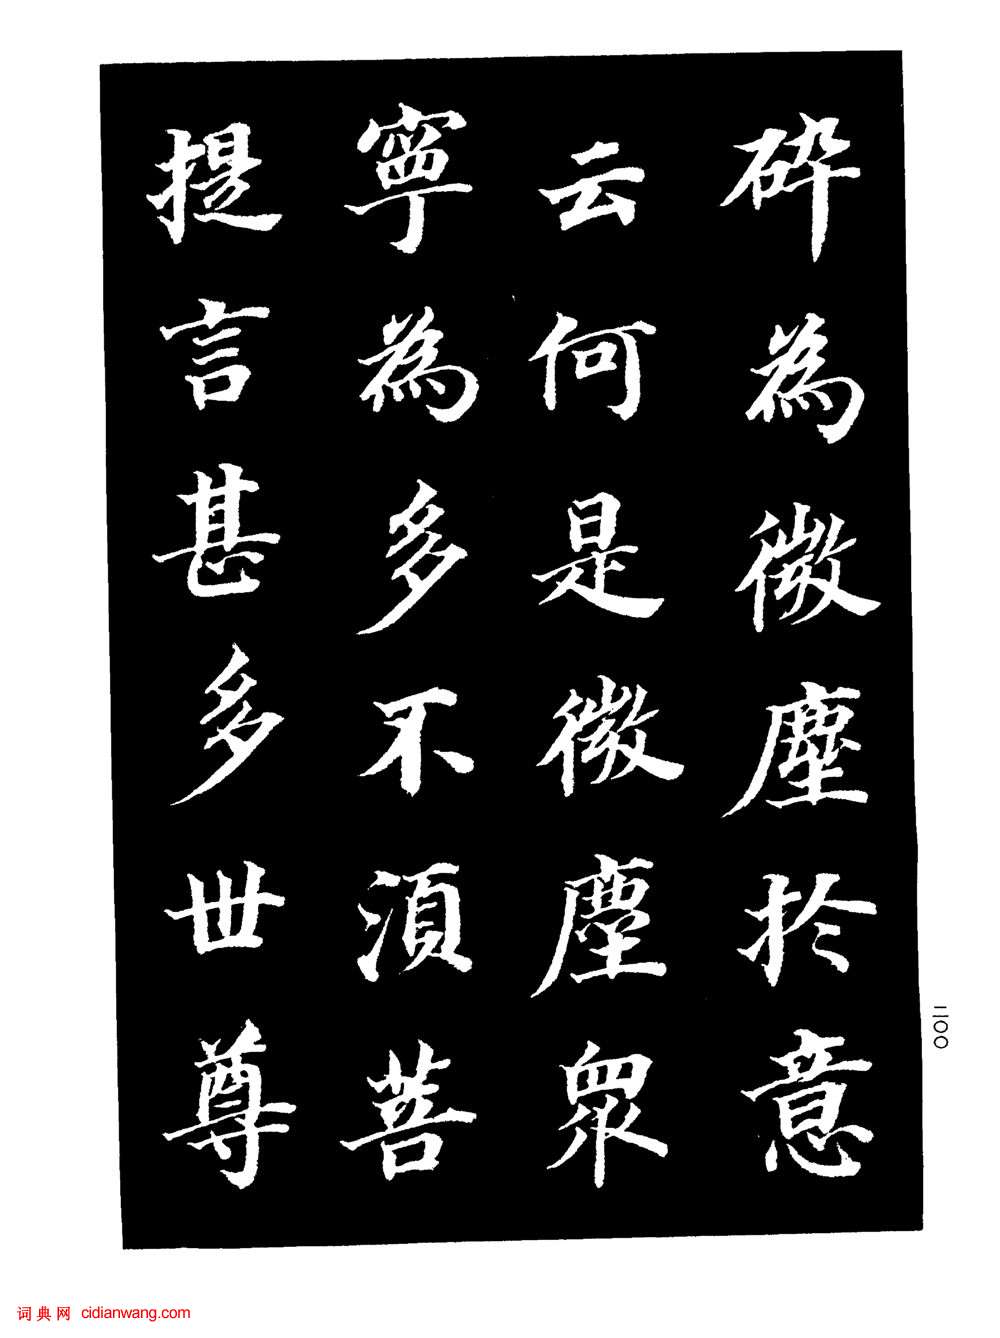 碎為微塵於意
云何是微塵眾
寧為多不須菩
提言甚多世尊
二〇〇
词典网 cidianwang.com